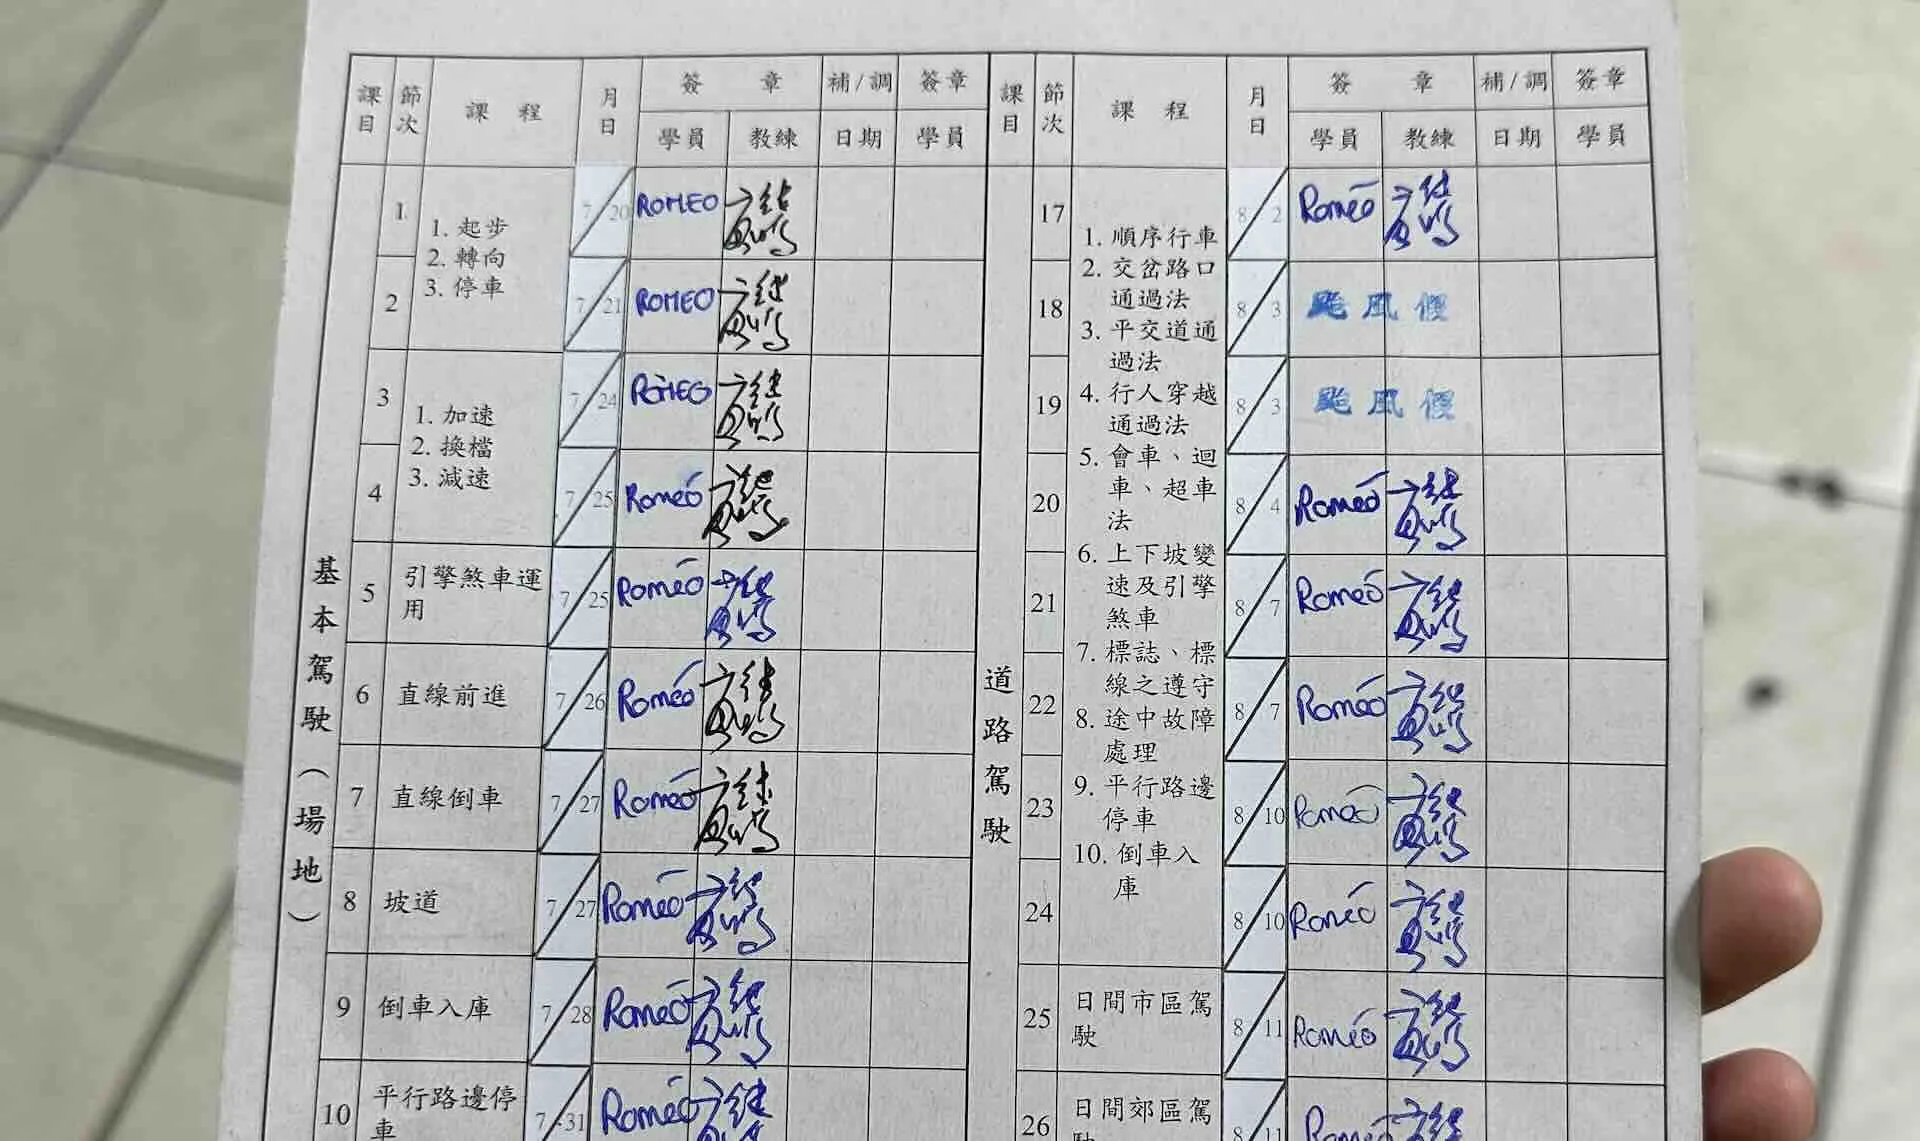 課目 節次 課程 月日 簽章 補/調 簽章 課目 節次 課程 月日 簽章 補/調 簽章
學員 教練 日期 學員 學員 教練 日期 學員
基本駕駛(場地)
1 1. 起步 7/20 ROMEO
2. 轉向
3. 停車
2 7/21 ROMEO
3 1. 加速 7/24 ROMEO
2. 換檔
3. 減速
4 7/25 Roméo
5 引擎煞車運 7/25 Roméo
用
6 直線前進 7/26 Roméo
7 直線倒車 7/27 Roméo
8 坡道 7/27 Roméo
9 倒車入庫 7/28 Roméo
10 平行路邊停 7/31 Roméo
車
道路駕駛
17 8/2 Roméo
1. 順序行車
2. 交岔路口
通過法
3. 平交道通
過法
4. 行人穿越
通過法
5. 會車、迴
車、超車
法
6. 上下坡變
速及引擎
煞車
7. 標誌、標
線之遵守
8. 途中故障
處理
9. 平行路邊
停車
10. 倒車入
庫
18 8/3 颱風假
19 8/3 颱風假
20 8/4 Roméo
21 8/7 Roméo
22 8/7 Roméo
23 8/10 Roméo
24 8/10 Roméo
25 日間市區駕 8/11 Roméo
駛
26 日間郊區駕 8/11 Roméo
駛